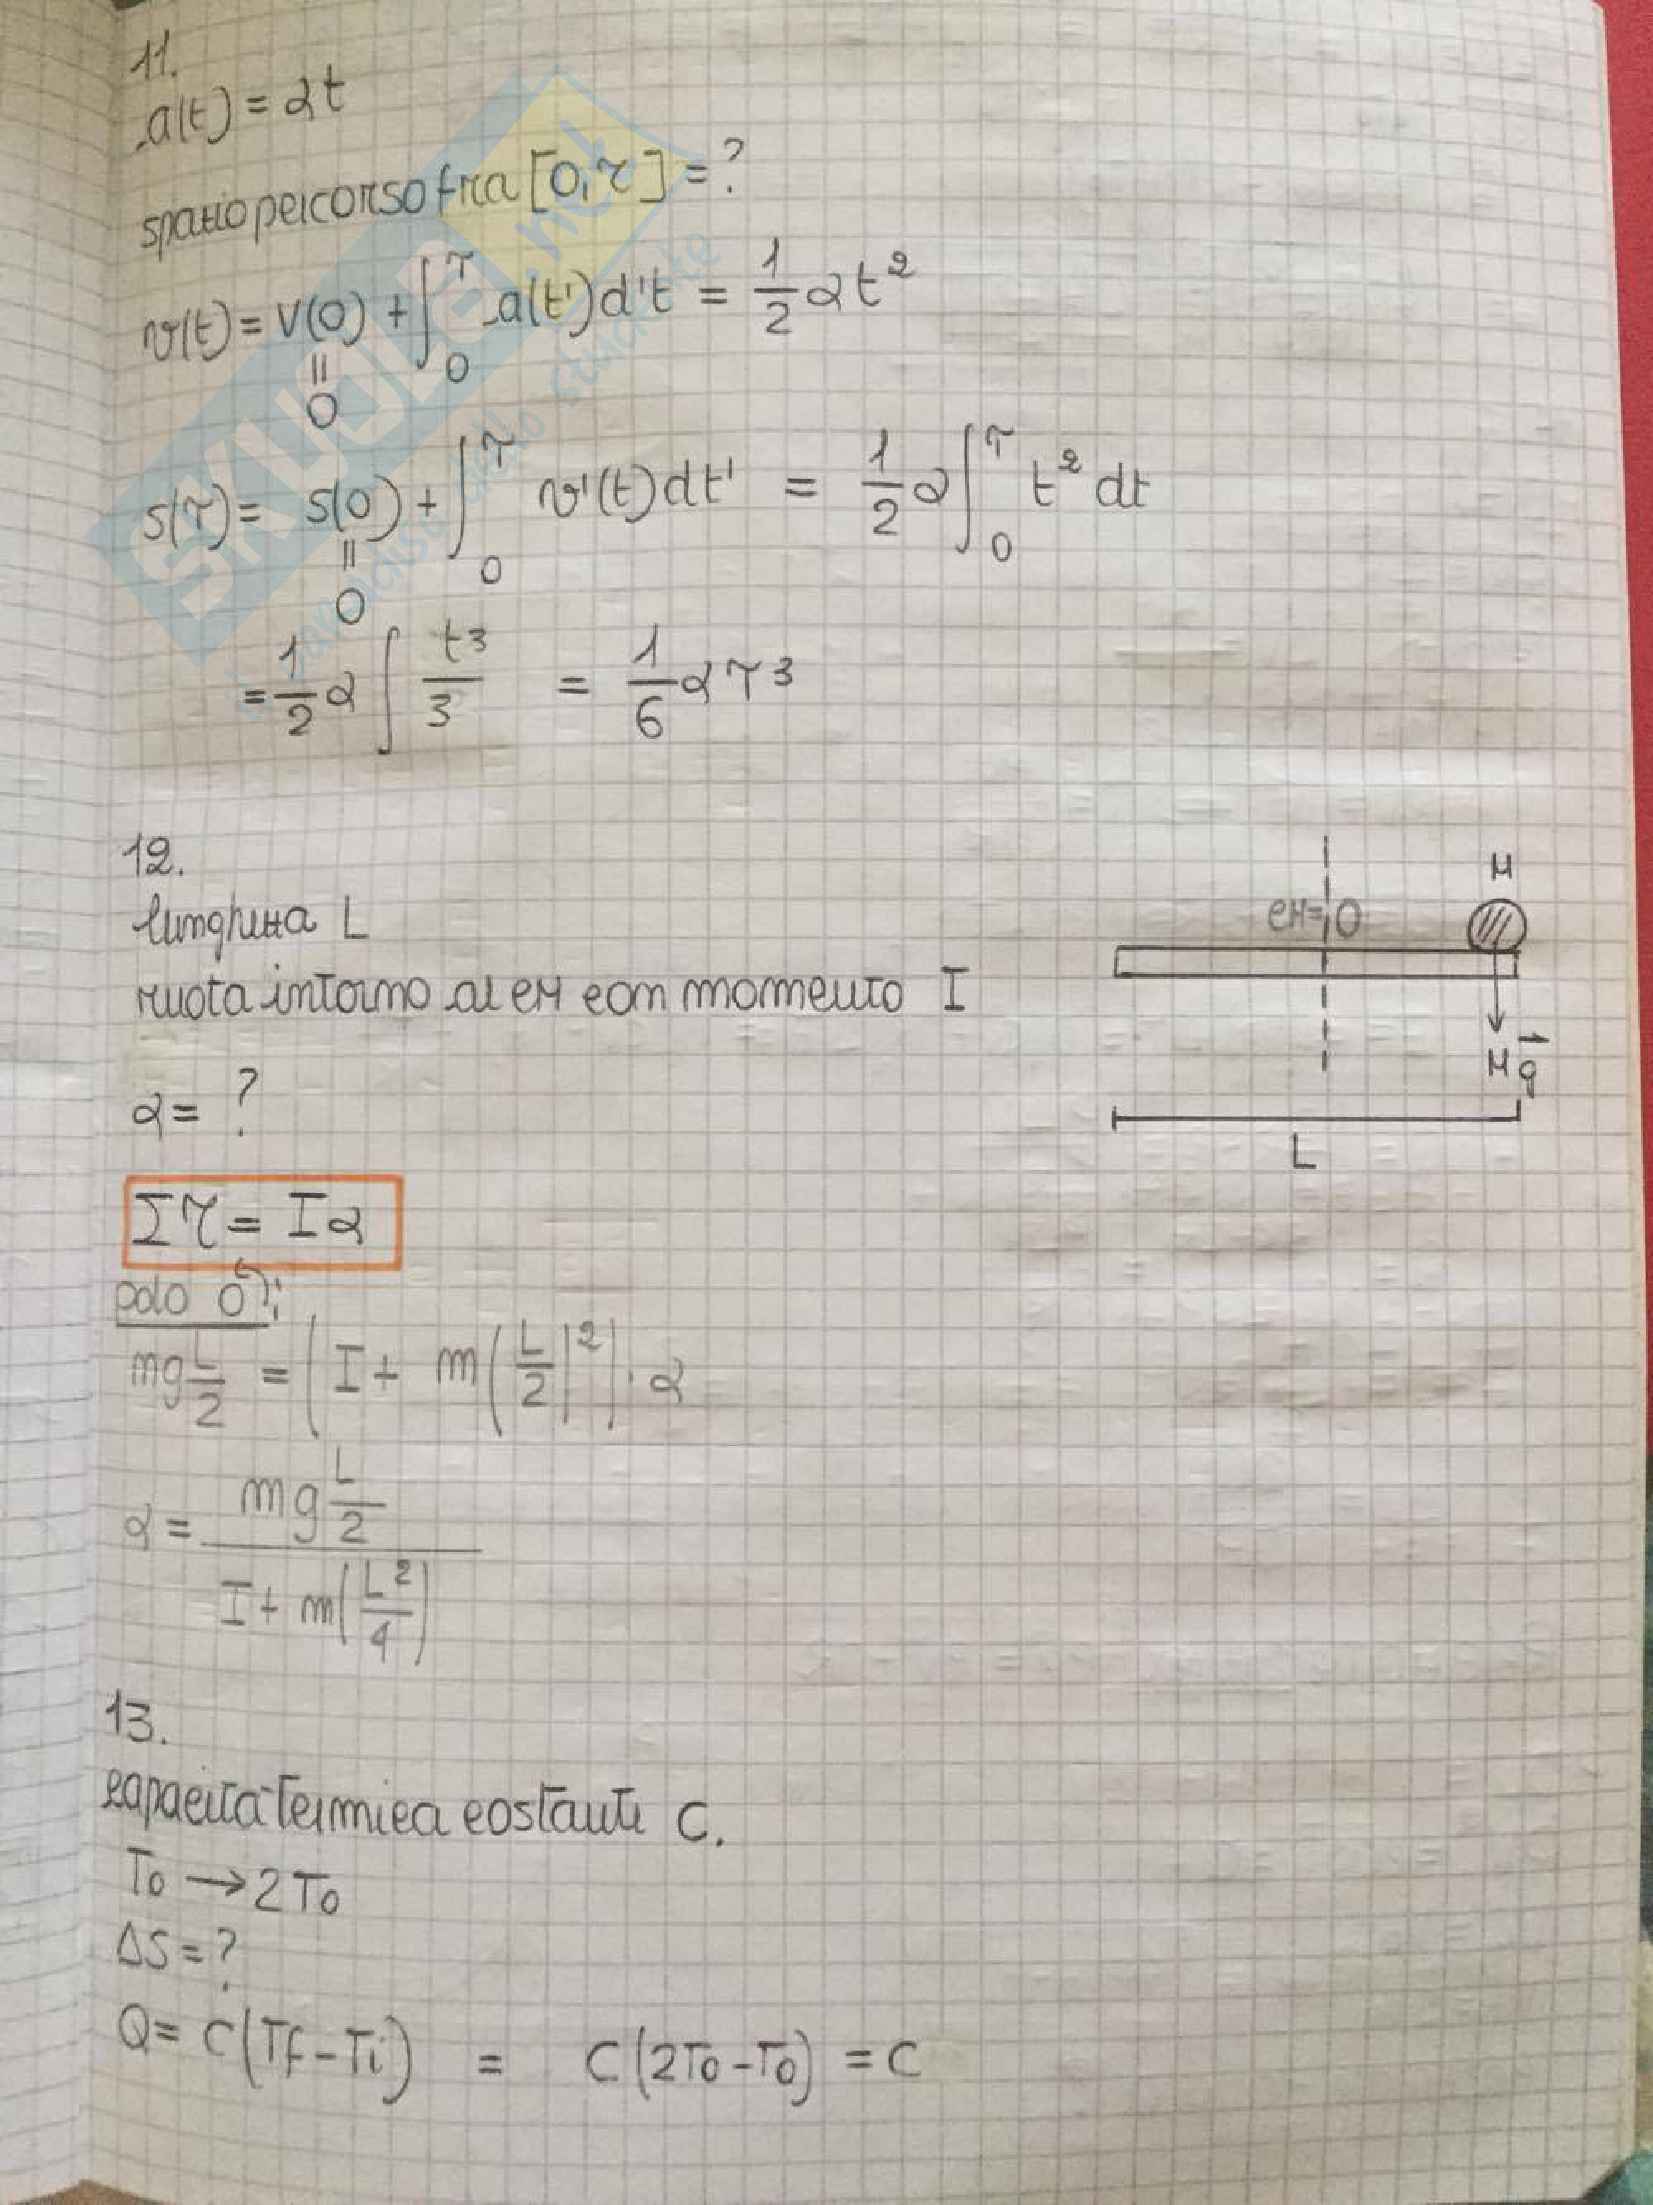 11.
a(t) = αt
spazio percorso fra [0, τ] = ?
v(t) = v(0) + ∫₀^τ a(t')d't = 1/2 αt²
=
0
s(τ) = s(0) + ∫₀^τ v'(t)dt' = 1/2 α ∫₀^τ t² dt
=
0
= 1/2 α ∫ t³/3 = 1/6 ατ³
12.
lunghezza L
ruota intorno al CM con momento I
α = ?
Στ = Iα
polo O:
mg L/2 = (I + m(L/2)²) · α
α = mg L/2 / I + m(L²/4)
M
CM=O
Mg⃗
L
13.
capacità termica costante C.
T₀ → 2T₀
ΔS = ?
Q = C(Tf - Ti) = C(2T₀ - T₀) = C
SKUOLA.net